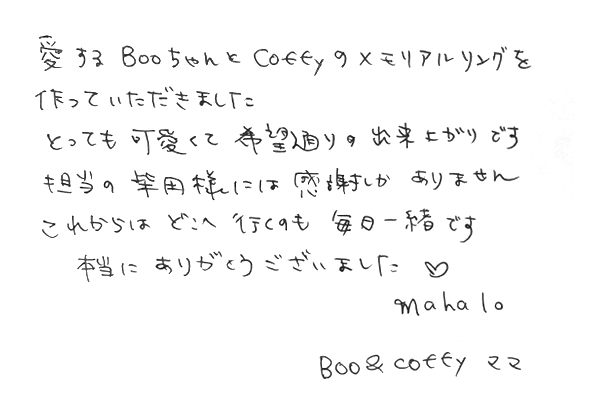 愛する Booちゃんと Coffyのメモリアルリングを
作っていただきました
とっても可愛くて 希望通りの出来上がりです
担当の柴田様には感謝しかありません
これからは どこへ行くのも毎日一緒です
本当に ありがとうございました ♡
mahalo
Boo&coffy ママ